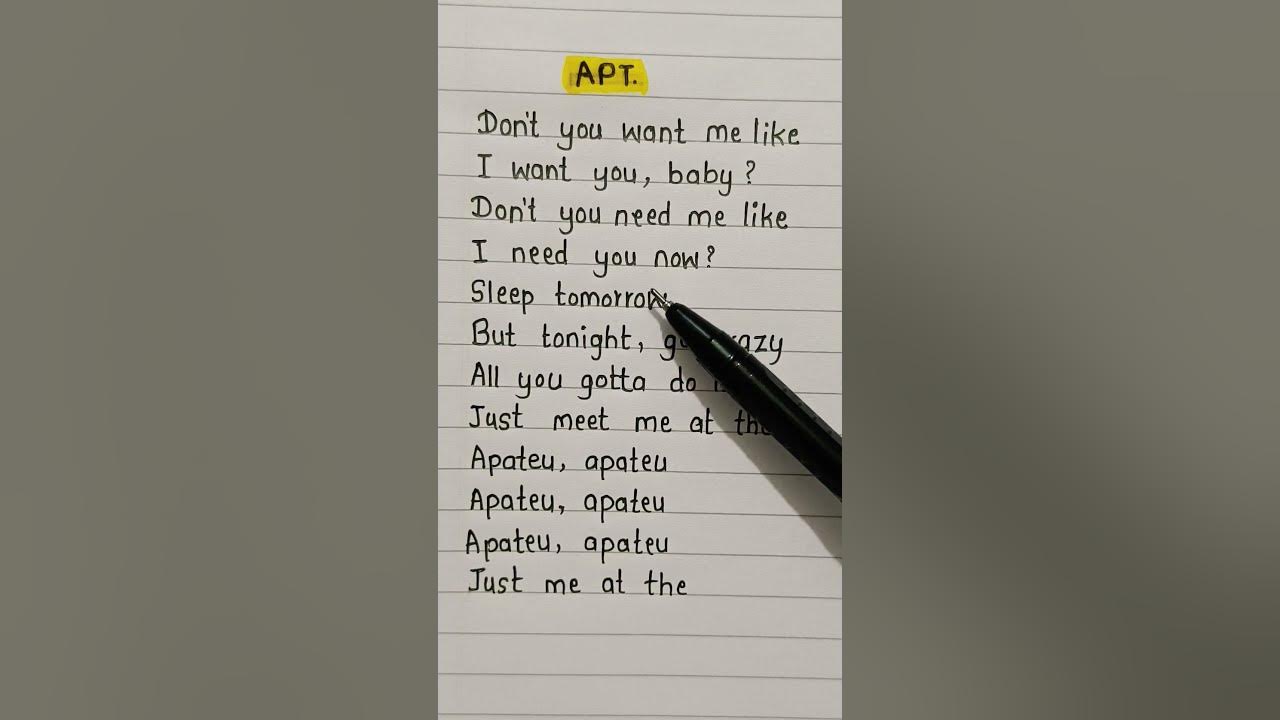 APT.
Don't you want me like
I want you, baby?
Don't you need me like
I need you now?
Sleep tomorrow
But tonight,
All you gotta do
Just meet me at the
Apateu, apateu
Apateu, apateu
Apateu, apateu
Just me at the